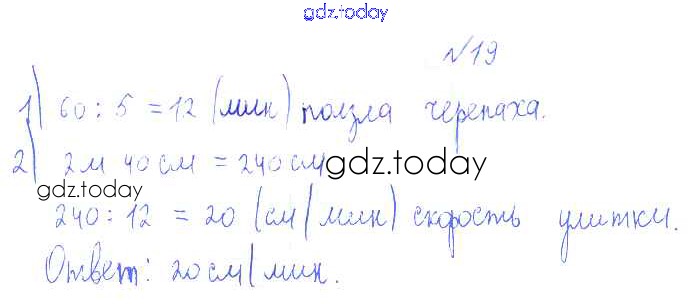 gdz.today
№19
1) 60 : 5 = 12 (мин) ползла черепаха.
2) 2м 40см = 240см
gdz.today
gdz.today
240 : 12 = 20 (см/мин) скорость улитки.
Ответ: 20см/мин.